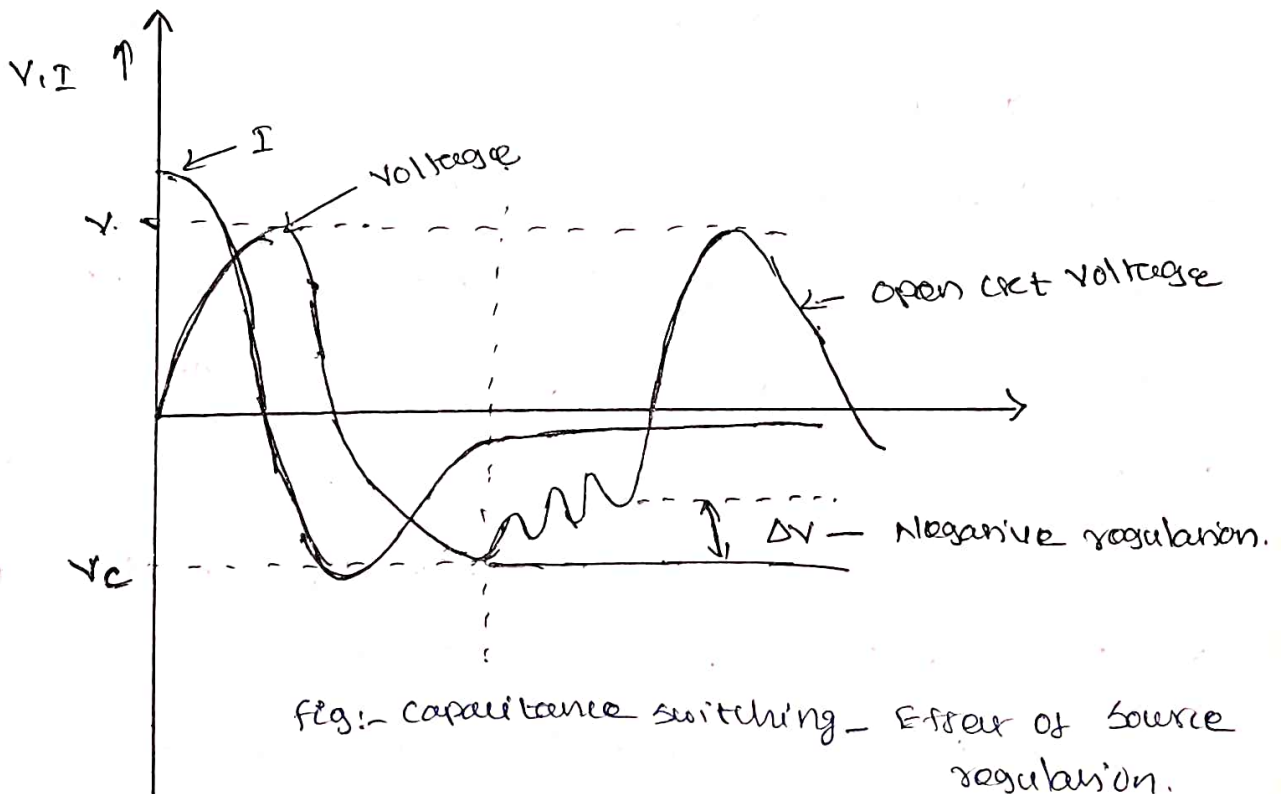 V, I ↑
I
voltage
V.
open ckt voltage
ΔV — Negative regulation.
Vc
fig:- Capacitance switching - Effect of source
regulation.